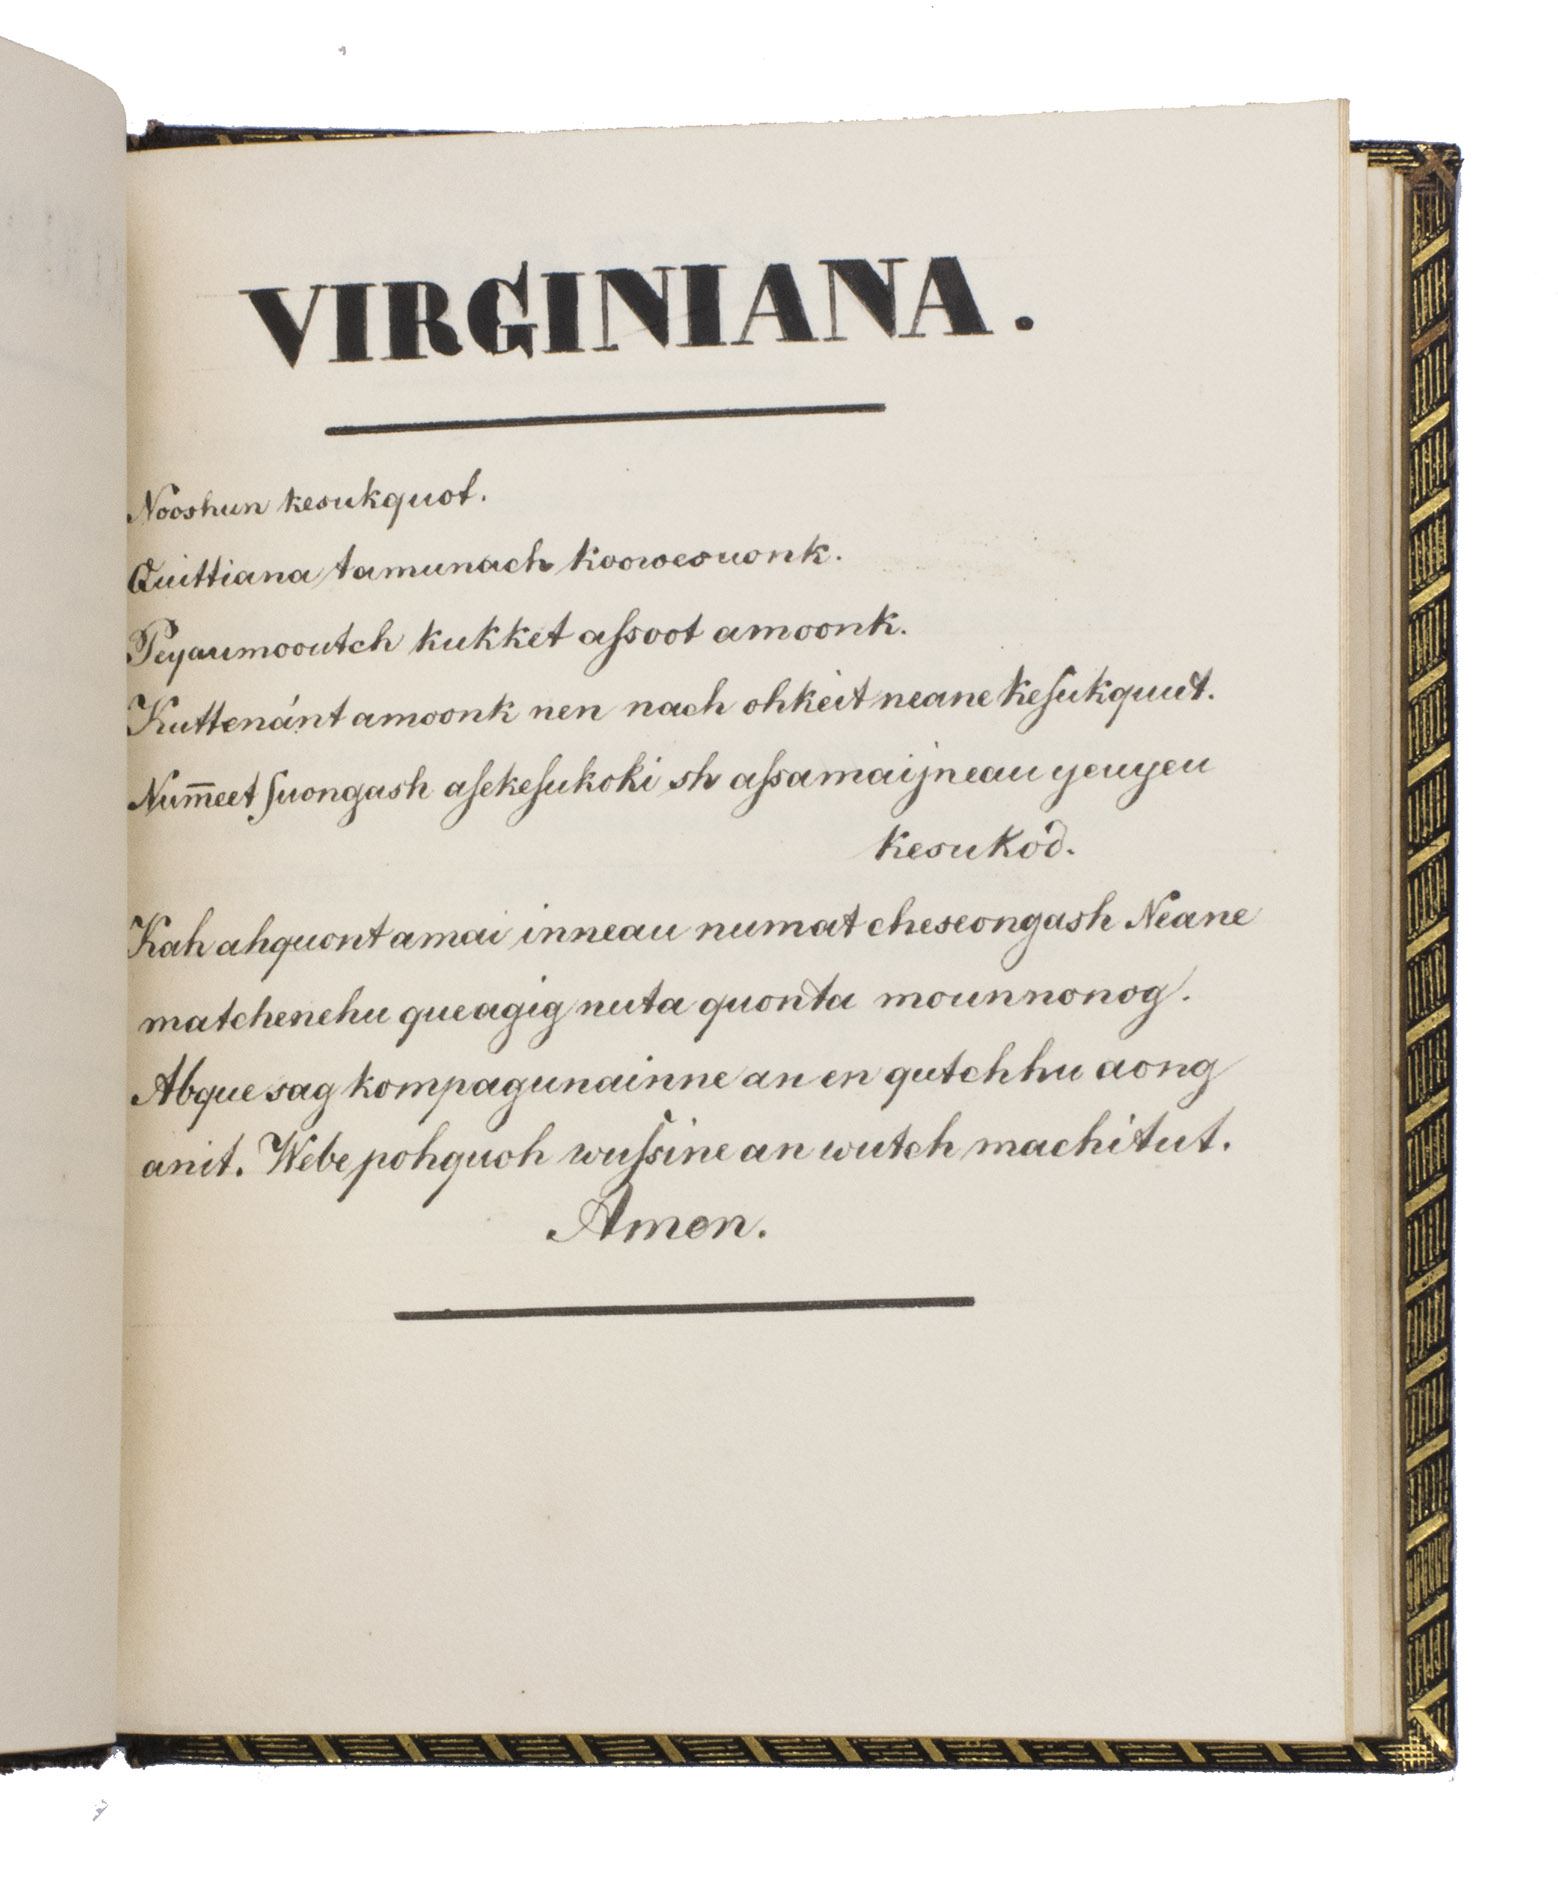 VIRGINIANA.
Nooshun kesukquot.
Quittiana tamunach koowesuonk.
Peyaumooutch kukket aſsoot amoonk.
Kuttenánt amoonk nen nach ohkeit neane keſukquut.
Num̅eet ſuongash aſekeſukoki sh aſsamaijneau yeuyeu
kesukod.
Kah ahquont amai inneau numat cheseongash Neane
matchenehu queagig nuta quonta mounnonog.
Abque sag kompagunainne an en qutchhu aong
anit. Webe pohquoh wuſsine an wutch machitut.
Amen.